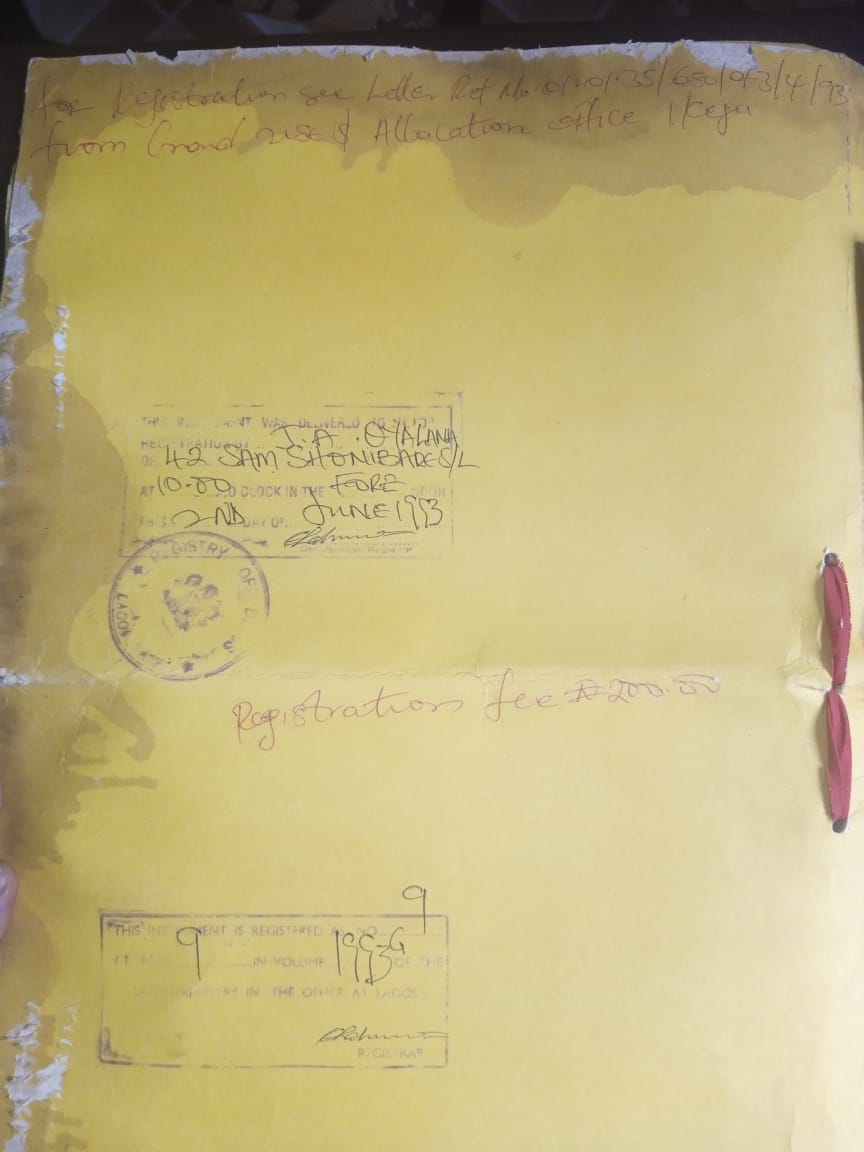 For Registration see Letter Ref No. 01.01.35/650/of 3/4/93
from Land use & Allocation office Ikeja
THIS INSTRUMENT WAS DELIVERED TO ME FOR
REGISTRATION BY J.A. OYALANA
OF 42 SAM SHONIBARE S/L
AT 10.00 O CLOCK IN THE FORE NOON
THIS 2ND DAY OF JUNE 1993
Registrar
REGISTRY OF
LAGOS
Registration fee ₦200.00
THIS INSTRUMENT IS REGISTERED AS NO 9
AT PAGE 9 IN VOLUME 1993G OF THE
REGISTRY IN THE OFFICE AT LAGOS
REGISTRAR